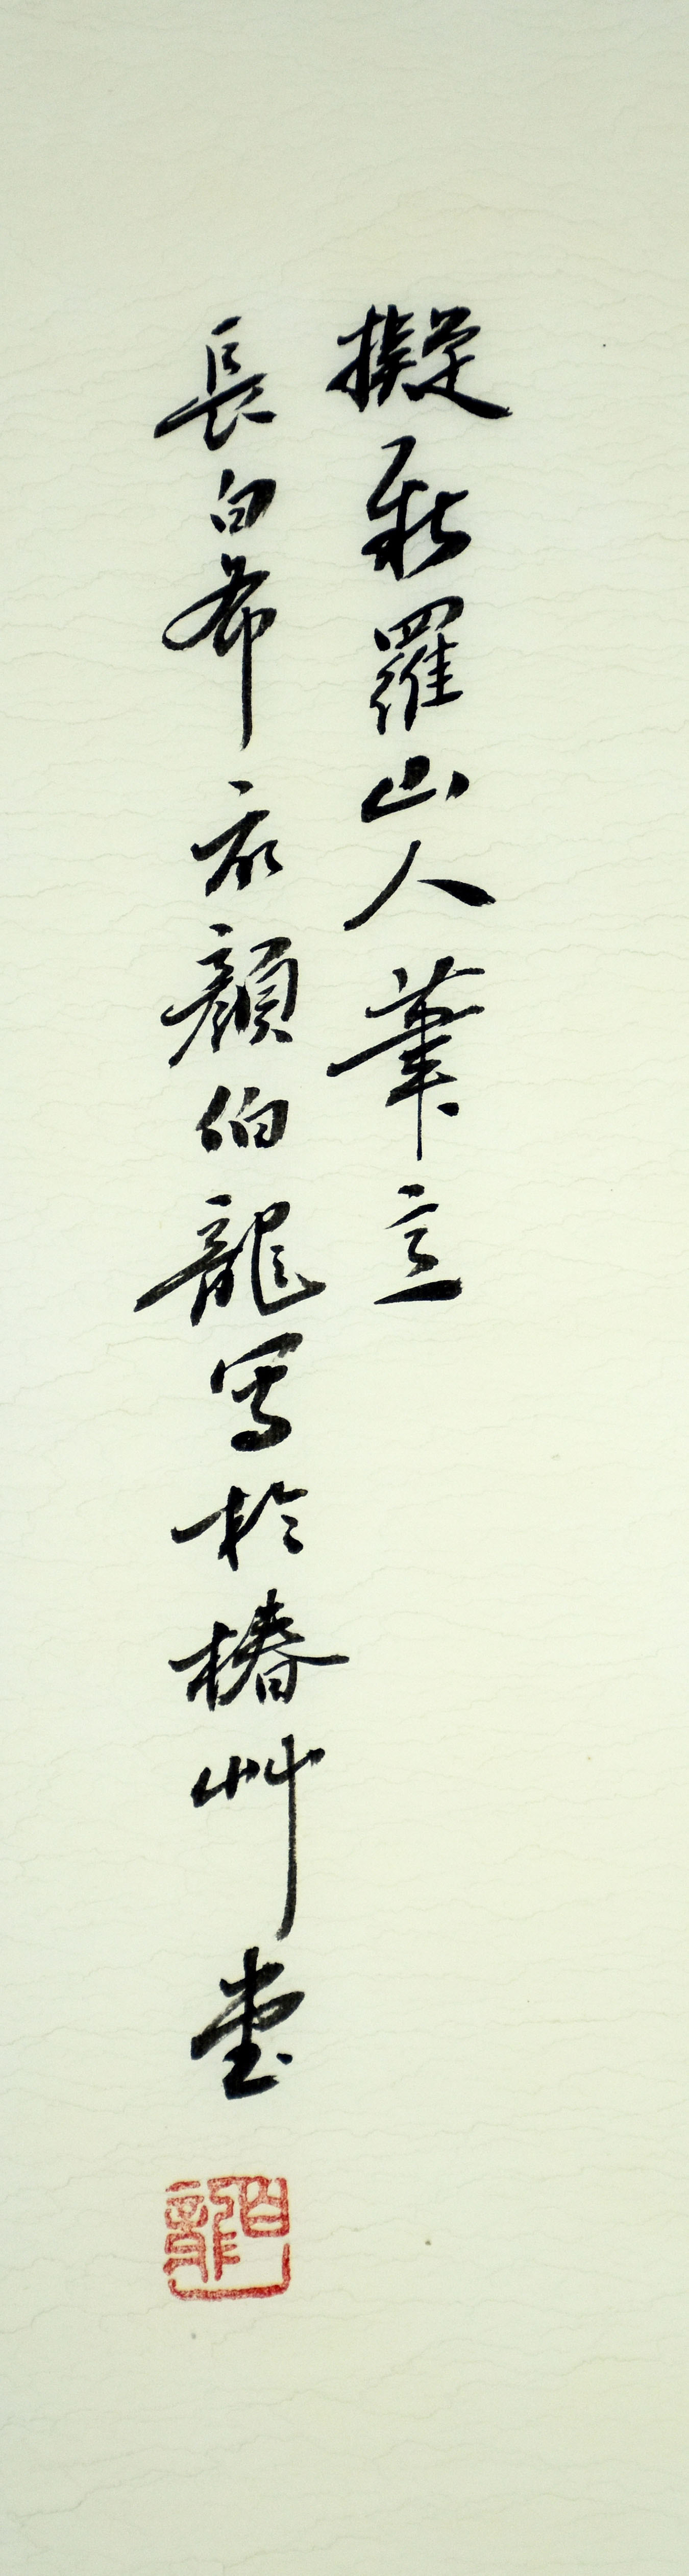 擬新羅山人筆意
長白布衣顏伯龍寫於椿艸堂
伯龍